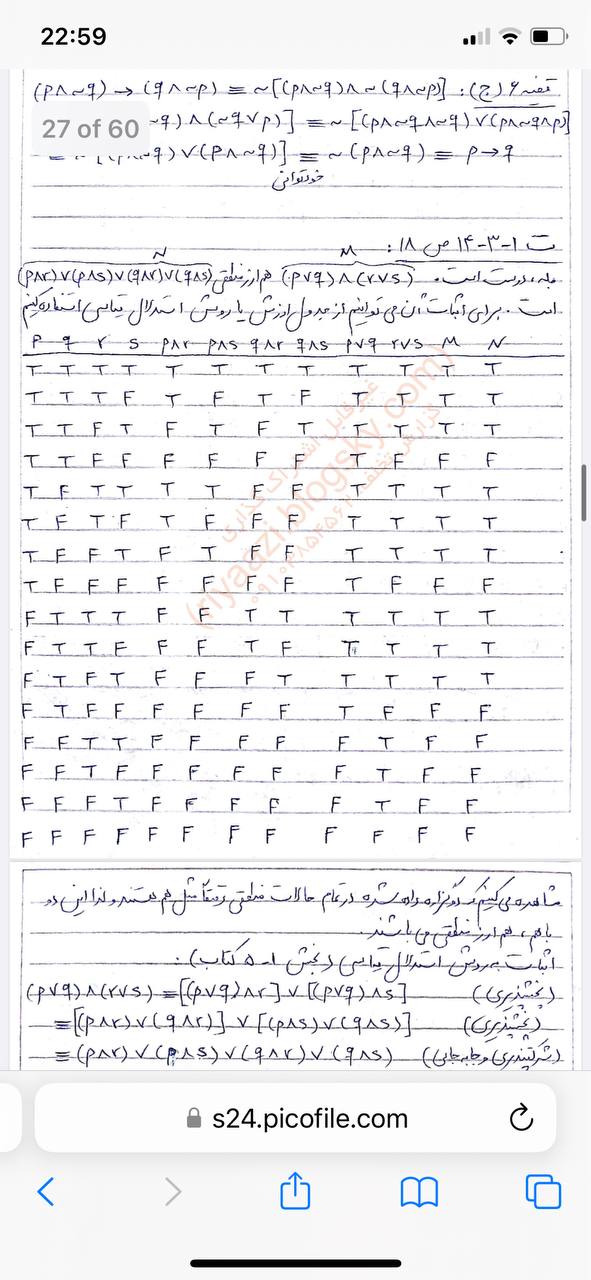 22:59
قضیه ۶ (ج): (p∧~q) → (q∧~p) ≡ ~[(p∧~q)∧~(q∧~p)]
27 of 60
~q)∧(~q∨p)] ≡ ~[(p∧~q∧~q)∨(p∧~q∧p)]
~q)∨(p∧~q)] ≡ ~(p∧~q) ≡ p→q
خودتوانی
ت ۱-۳-۱۴ ص ۱۸:
N M
بله، درست است. (p∨q)∧(r∨s) هم ارز منطقی (p∧r)∨(p∧s)∨(q∧r)∨(q∧s)
است. برای اثبات آن می توانیم از جدول ارزش یا روش استدلال قیاسی استفاده کنیم
p q r s p∧r p∧s q∧r q∧s p∨q r∨s M N
T T T T T T T T T T T T
T T T F T F T F T T T T
T T F T F T F T T T T T
T T F F F F F F T F F F
T F T T T T F F T T T T
T F T F T F F F T T T T
T F F T F T F F T T T T
T F F F F F F F T F F F
F T T T F F T T T T T T
F T T F F F T F T T T T
F T F T F F F T T T T T
F T F F F F F F T F F F
F F T T F F F F F T F F
F F T F F F F F F T F F
F F F T F F F F F T F F
F F F F F F F F F F F F
غیرقابل اشتراک گذاری
(riyaazi.blogsky.com)
گزارش تخلف
مشاهده می کنیم که دو گزاره داده شده در تمام حالات منطقی دقیقاً مثل هم هستند و لذا این دو
باهم، هم ارز منطقی می باشند.
اثبات به روش استدلال قیاسی (بخش ۱-۵ کتاب):
(p∨q)∧(r∨s) ≡ [(p∨q)∧r]∨[(p∨q)∧s] (پخشپذیری)
≡ [(p∧r)∨(q∧r)]∨[(p∧s)∨(q∧s)] (پخشپذیری)
≡ (p∧r)∨(p∧s)∨(q∧r)∨(q∧s) (شرکتپذیری و جابه جایی)
s24.picofile.com